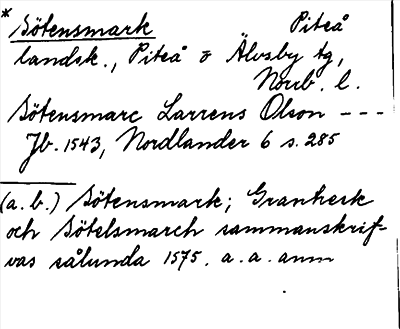 * Sötensmark Piteå
landsk., Piteå o Älvsby tg,
Norrb. l.
Sötensmarc Larrens Olson ---
Jb. 1543, Nordlander 6 s. 285
(a. b.) Sötensmark; Granherk
och Sötelsmarch sammanskrif-
vas sålunda 1575. a. a. anm